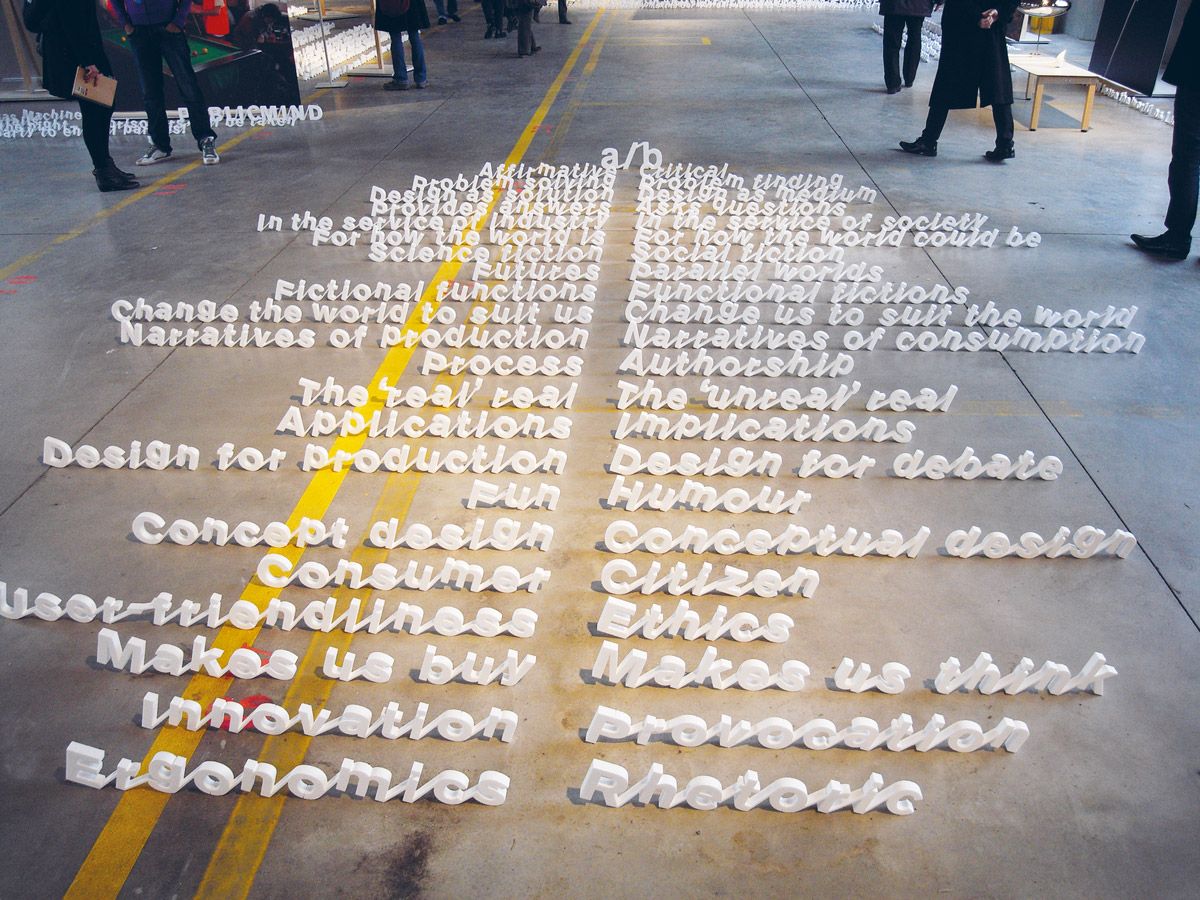 PUBLICMIND
a/b
Affirmative Critical
Problem solving Problem finding
Design as solution Design as medium
Provides answers Asks questions
In the service of industry In the service of society
For how the world is For how the world could be
Science fiction Social fiction
Futures Parallel worlds
Fictional functions Functional fictions
Change the world to suit us Change us to suit the world
Narratives of production Narratives of consumption
Process Authorship
The 'real' real The 'unreal' real
Applications Implications
Design for production Design for debate
Fun Humour
Concept design Conceptual design
Consumer Citizen
user-friendliness Ethics
Makes us buy Makes us think
Innovation Provocation
Ergonomics Rhetoric